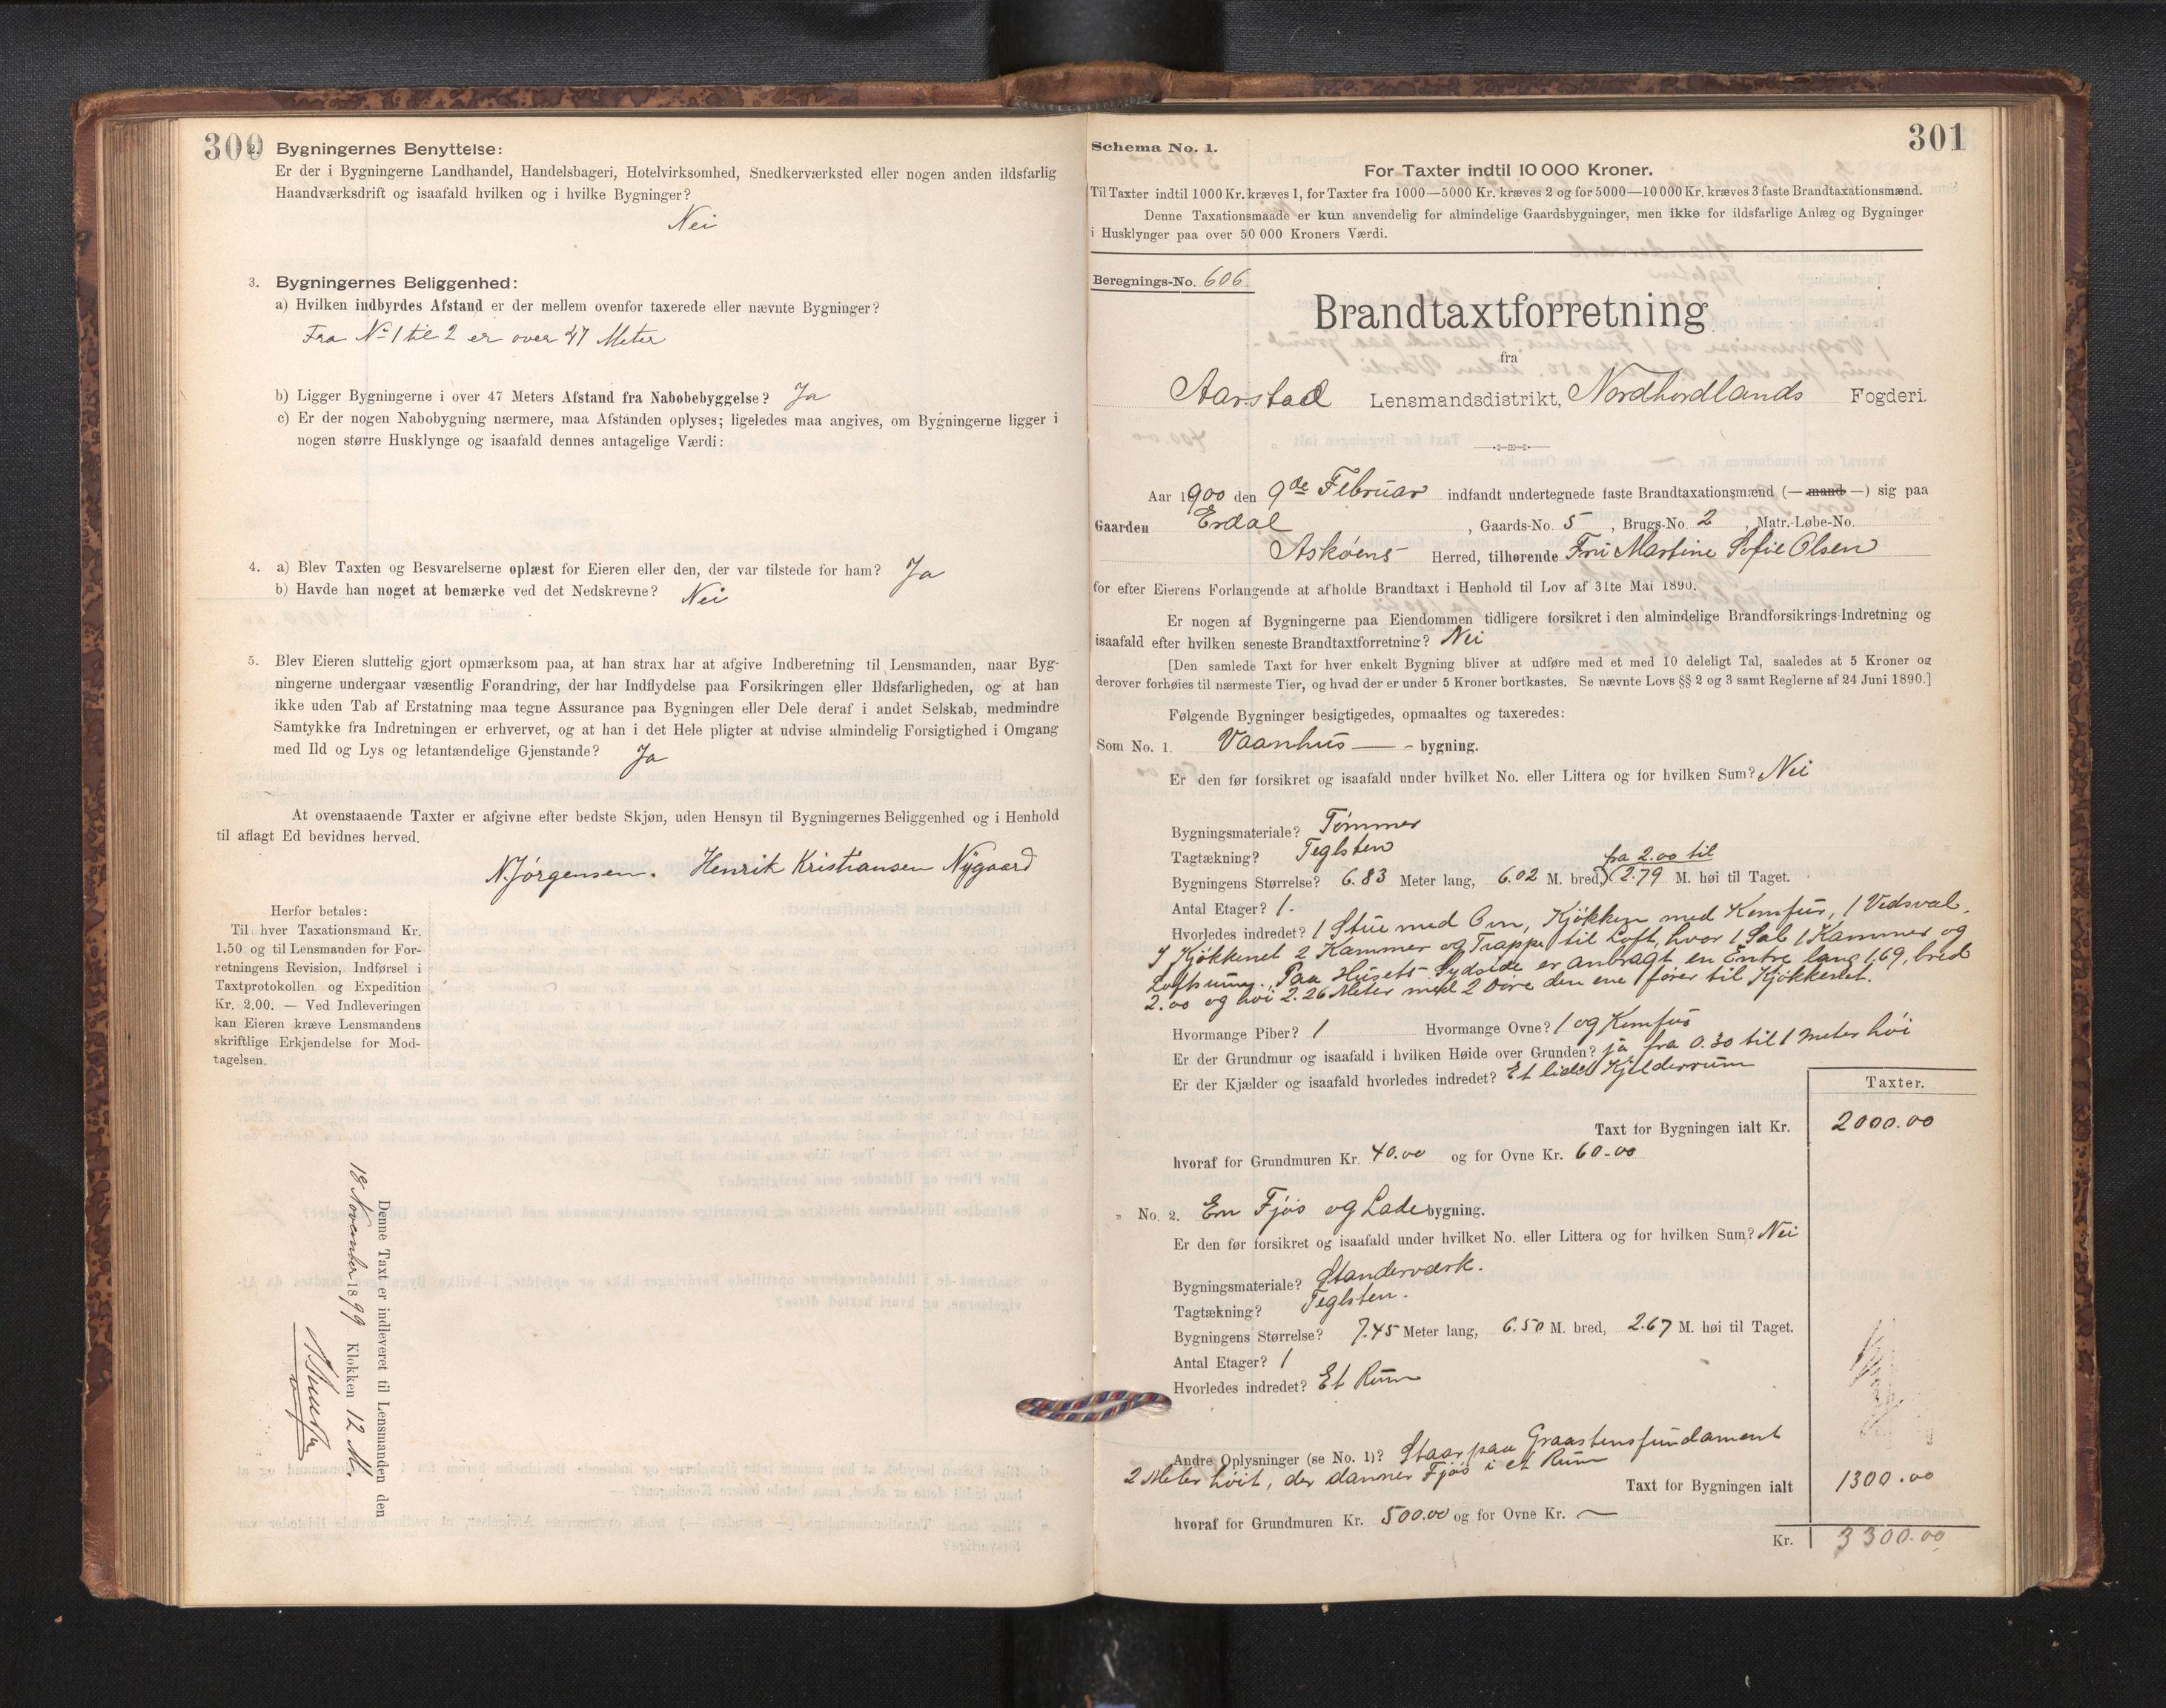 300
2. Bygningernes Benyttelse:
Er der i Bygningerne Landhandel, Handelsbageri, Hotelvirksomhed, Snedkerværksted eller nogen anden ildsfarlig
Haandværksdrift og isaafald hvilken og i hvilke Bygninger?
Nei
3. Bygningernes Beliggenhed:
a) Hvilken indbyrdes Afstand er der mellem ovenfor taxerede eller nævnte Bygninger?
Fra No 1 til 2 er over 47 Meter
b) Ligger Bygningerne i over 47 Meters Afstand fra Nabobebyggelse? Ja
c) Er der nogen Nabobygning nærmere, maa Afstanden oplyses; ligeledes maa angives, om Bygningerne ligger i
nogen større Husklynge og isaafald dennes antagelige Værdi:
4. a) Blev Taxten og Besvarelserne oplæst for Eieren eller den, der var tilstede for ham? Ja
b) Havde han noget at bemærke ved det Nedskrevne? Nei
5. Blev Eieren sluttelig gjort opmærksom paa, at han strax har at afgive Indberetning til Lensmanden, naar Byg-
ningerne undergaar væsentlig Forandring, der har Indflydelse paa Forsikringen eller Ildsfarligheden, og at han
ikke uden Tab af Erstatning maa tegne Assurance paa Bygningen eller Dele deraf i andet Selskab, medmindre
Samtykke fra Indretningen er erhvervet, og at han i det Hele pligter at udvise almindelig Forsigtighed i Omgang
med Ild og Lys og letantændelige Gjenstande? Ja
At ovenstaaende Taxter er afgivne efter bedste Skjøn, uden Hensyn til Bygningernes Beliggenhed og i Henhold
til aflagt Ed bevidnes herved.
N. Jörgensen. Henrik Kristiansen Nÿgaard
Herfor betales:
Til hver Taxationsmand Kr.
1.50 og til Lensmanden for For-
retningens Revision, Indførsel i
Taxtprotokollen og Expedition
Kr. 2.00. — Ved Indleveringen
kan Eieren kræve Lensmandens
skriftlige Erkjendelse for Mod-
tagelsen.
Denne Taxt er indleveret til Lensmanden den
18 November 1899 Klokken 12 M.
301
Schema No. 1.
For Taxter indtil 10 000 Kroner.
Til Taxter indtil 1000 Kr. kræves 1, for Taxter fra 1000—5000 Kr. kræves 2 og for 5000—10 000 Kr. kræves 3 faste Brandtaxationsmænd.
Denne Taxationsmaade er kun anvendelig for almindelige Gaardsbygninger, men ikke for ildsfarlige Anlæg og Bygninger
i Husklynger paa over 50 000 Kroners Værdi.
Beregnings-No. 606
Brandtaxtforretning
fra
Aarstad Lensmandsdistrikt, Nordhordlands Fogderi.
Aar 1900 den 9de Februar indfandt undertegnede faste Brandtaxationsmænd (— mand —) sig paa
Gaarden Erdal, Gaards-No. 5, Brugs-No. 2, Matr.-Løbe-No.
Askøens Herred, tilhørende Fru Martine Sofie Olsen
for efter Eierens Forlangende at afholde Brandtaxt i Henhold til Lov af 31te Mai 1890.
Er nogen af Bygningerne paa Eiendommen tidligere forsikret i den almindelige Brandforsikrings-Indretning og
isaafald efter hvilken seneste Brandtaxtforretning? Nei
[Den samlede Taxt for hver enkelt Bygning bliver at udføre med et med 10 deleligt Tal, saaledes at 5 Kroner og
derover forhøies til nærmeste Tier, og hvad der er under 5 Kroner bortkastes. Se nævnte Lovs §§ 2 og 3 samt Reglerne af 24 Juni 1890.]
Følgende Bygninger besigtigedes, opmaaltes og taxeredes:
Som No. 1. Vaanhus — - bygning.
Er den før forsikret og isaafald under hvilket No. eller Littera og for hvilken Sum? Nei
Bygningsmateriale? Tømmer
Tagtækning? Teglsten
fra 2.00 til
Bygningens Størrelse? 6.83 Meter lang, 6.02 M. bred, 2.79 M. høi til Taget.
Antal Etager? 1.
Hvorledes indredet? 1 Stue med Ovn, Kjökken med Komfur, 1 Vedsval.
I Kjøkkenet 2 Kammer og Trappe til Loft, hvor 1 Sal 1 Kammer og
Loftsrum. Paa Husets Sydside er anbragt en Entre lang 1,69, bred
2.00 og høi 2.26 Meter med 2 Døre den ene fører til Kjøkkenet.
Hvormange Piber? 1 Hvormange Ovne? 1 og Komfur
Er der Grundmur og isaafald i hvilken Høide over Grunden? ja fra 0.30 til 1 meter høi
Er der Kjælder og isaafald hvorledes indredet? Et lidet Kjelderrum
Taxter.
Taxt for Bygningen ialt Kr. 2000.00
hvoraf for Grundmuren Kr. 40.00 og for Ovne Kr. 60.00
" No. 2. Em Fjøs og Lade bygning.
Er den før forsikret og isaafald under hvilket No. eller Littera og for hvilken Sum? Nei
Bygningsmateriale? Standerværk.
Tagtækning? Teglsten.
Bygningens Størrelse? 7.45 Meter lang, 6.50 M. bred, 2.67 M. høi til Taget.
Antal Etager? 1
Hvorledes indredet? Et Rum
Andre Oplysninger (se No. 1)? Staar paa Graastensfundament
2 Meter høit, der danner Fjøs i et Rum
Taxt for Bygningen ialt 1300.00
hvoraf for Grundmuren Kr. 500.00 og for Ovne Kr. —
Kr. 3300.00